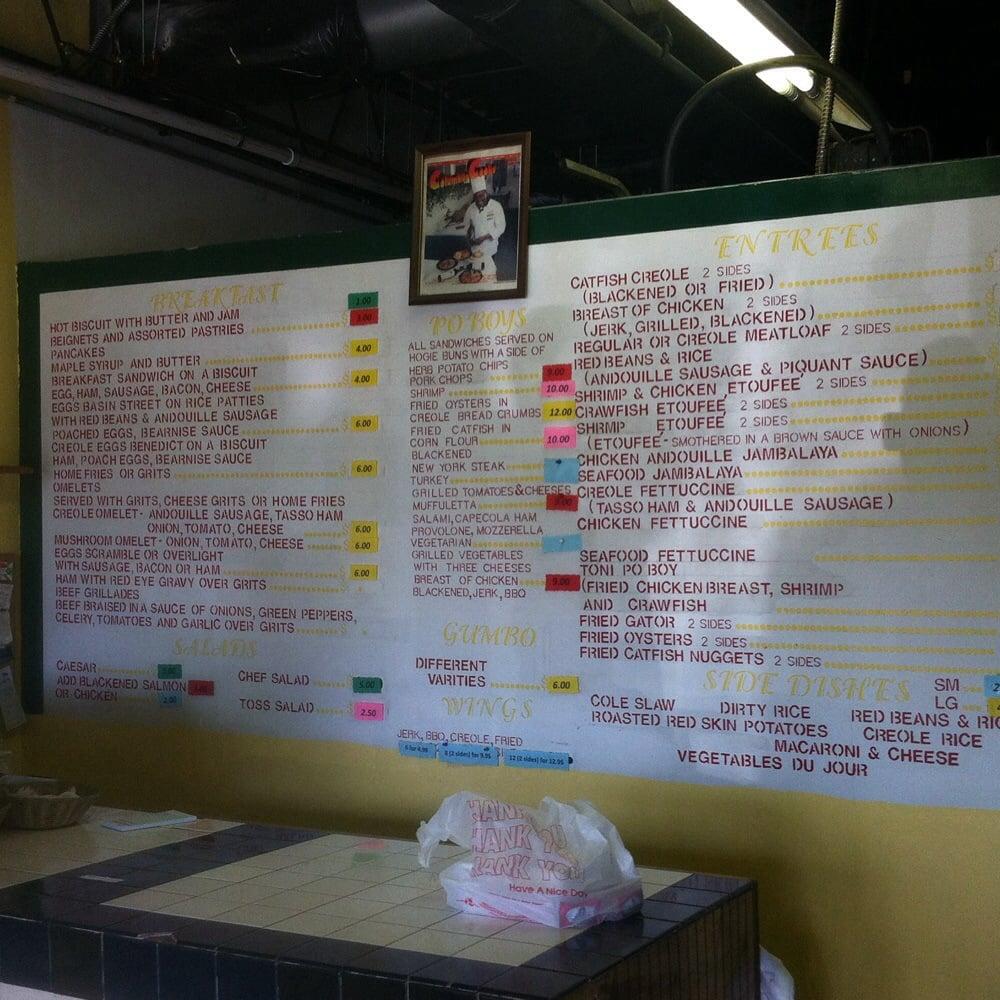 BREAKFAST
1.00
HOT BISCUIT WITH BUTTER AND JAM
BEIGNETS AND ASSORTED PASTRIES $ 3.00
PANCAKES
MAPLE SYRUP AND BUTTER $ 4.00
BREAKFAST SANDWICH ON A BISCUIT
EGG, HAM, SAUSAGE, BACON, CHEESE $ 4.00
EGGS BASIN STREET ON RICE PATTIES
WITH RED BEANS & ANDOUILLE SAUSAGE
POACHED EGGS, BEARNISE SAUCE $ 6.00
CREOLE EGGS BENEDICT ON A BISCUIT
HAM, POACH EGGS, BEARNISE SAUCE
HOME FRIES OR GRITS $ 6.00
OMELETS
SERVED WITH GRITS, CHEESE GRITS OR HOME FRIES
CREOLE OMELET - ANDOUILLE SAUSAGE, TASSO HAM
ONION, TOMATO, CHEESE $ 6.00
MUSHROOM OMELET - ONION, TOMATO, CHEESE $ 6.00
EGGS SCRAMBLE OR OVERLIGHT
WITH SAUSAGE, BACON OR HAM $ 6.00
HAM WITH RED EYE GRAVY OVER GRITS
BEEF GRILLADES
BEEF BRAISED IN A SAUCE OF ONIONS, GREEN PEPPERS,
CELERY, TOMATOES AND GARLIC OVER GRITS
SALADS
CAESAR
ADD BLACKENED SALMON
OR CHICKEN 2.00
CHEF SALAD 5.00
TOSS SALAD 2.50
Creole
PO BOYS
ALL SANDWICHES SERVED ON
HOGIE BUNS WITH A SIDE OF
HERB POTATO CHIPS
PORK CHOPS 9.00
SHRIMP 10.00
FRIED OYSTERS IN
CREOLE BREAD CRUMBS 12.00
FRIED CATFISH IN
CORN FLOUR 10.00
BLACKENED
NEW YORK STEAK
TURKEY
GRILLED TOMATOES & CHEESES
MUFFULETTA 9.00
SALAMI, CAPECOLA HAM
PROVOLONE, MOZZERELLA
VEGETARIAN
GRILLED VEGETABLES
WITH THREE CHEESES
BREAST OF CHICKEN 9.00
BLACKENED, JERK, BBQ
GUMBO
DIFFERENT
VARITIES 6.00
WINGS
JERK, BBQ, CREOLE, FRIED
6 for 4.95 8 (2 sides) for 9.95 12 (2 sides) for 12.95
ENTREES
CATFISH CREOLE 2 SIDES
(BLACKENED OR FRIED) $
BREAST OF CHICKEN 2 SIDES
(JERK, GRILLED, BLACKENED)
REGULAR OR CREOLE MEATLOAF 2 SIDES
RED BEANS & RICE
(ANDOUILLE SAUSAGE & PIQUANT SAUCE)
SHRIMP & CHICKEN ETOUFEE 2 SIDES
CRAWFISH ETOUFEE 2 SIDES
SHRIMP ETOUFEE 2 SIDES
(ETOUFEE - SMOTHERED IN A BROWN SAUCE WITH ONIONS)
CHICKEN ANDOUILLE JAMBALAYA
SEAFOOD JAMBALAYA
CREOLE FETTUCCINE
(TASSO HAM & ANDOUILLE SAUSAGE)
CHICKEN FETTUCCINE
SEAFOOD FETTUCCINE
TONI PO BOY
(FRIED CHICKEN BREAST, SHRIMP
AND CRAWFISH
FRIED GATOR 2 SIDES
FRIED OYSTERS 2 SIDES
FRIED CATFISH NUGGETS 2 SIDES
SIDE DISHES
SM
LG
COLE SLAW DIRTY RICE RED BEANS & RIC
ROASTED RED SKIN POTATOES CREOLE RICE
MACARONI & CHEESE
VEGETABLES DU JOUR
THANK YOU
THANK YOU
Have A Nice Day